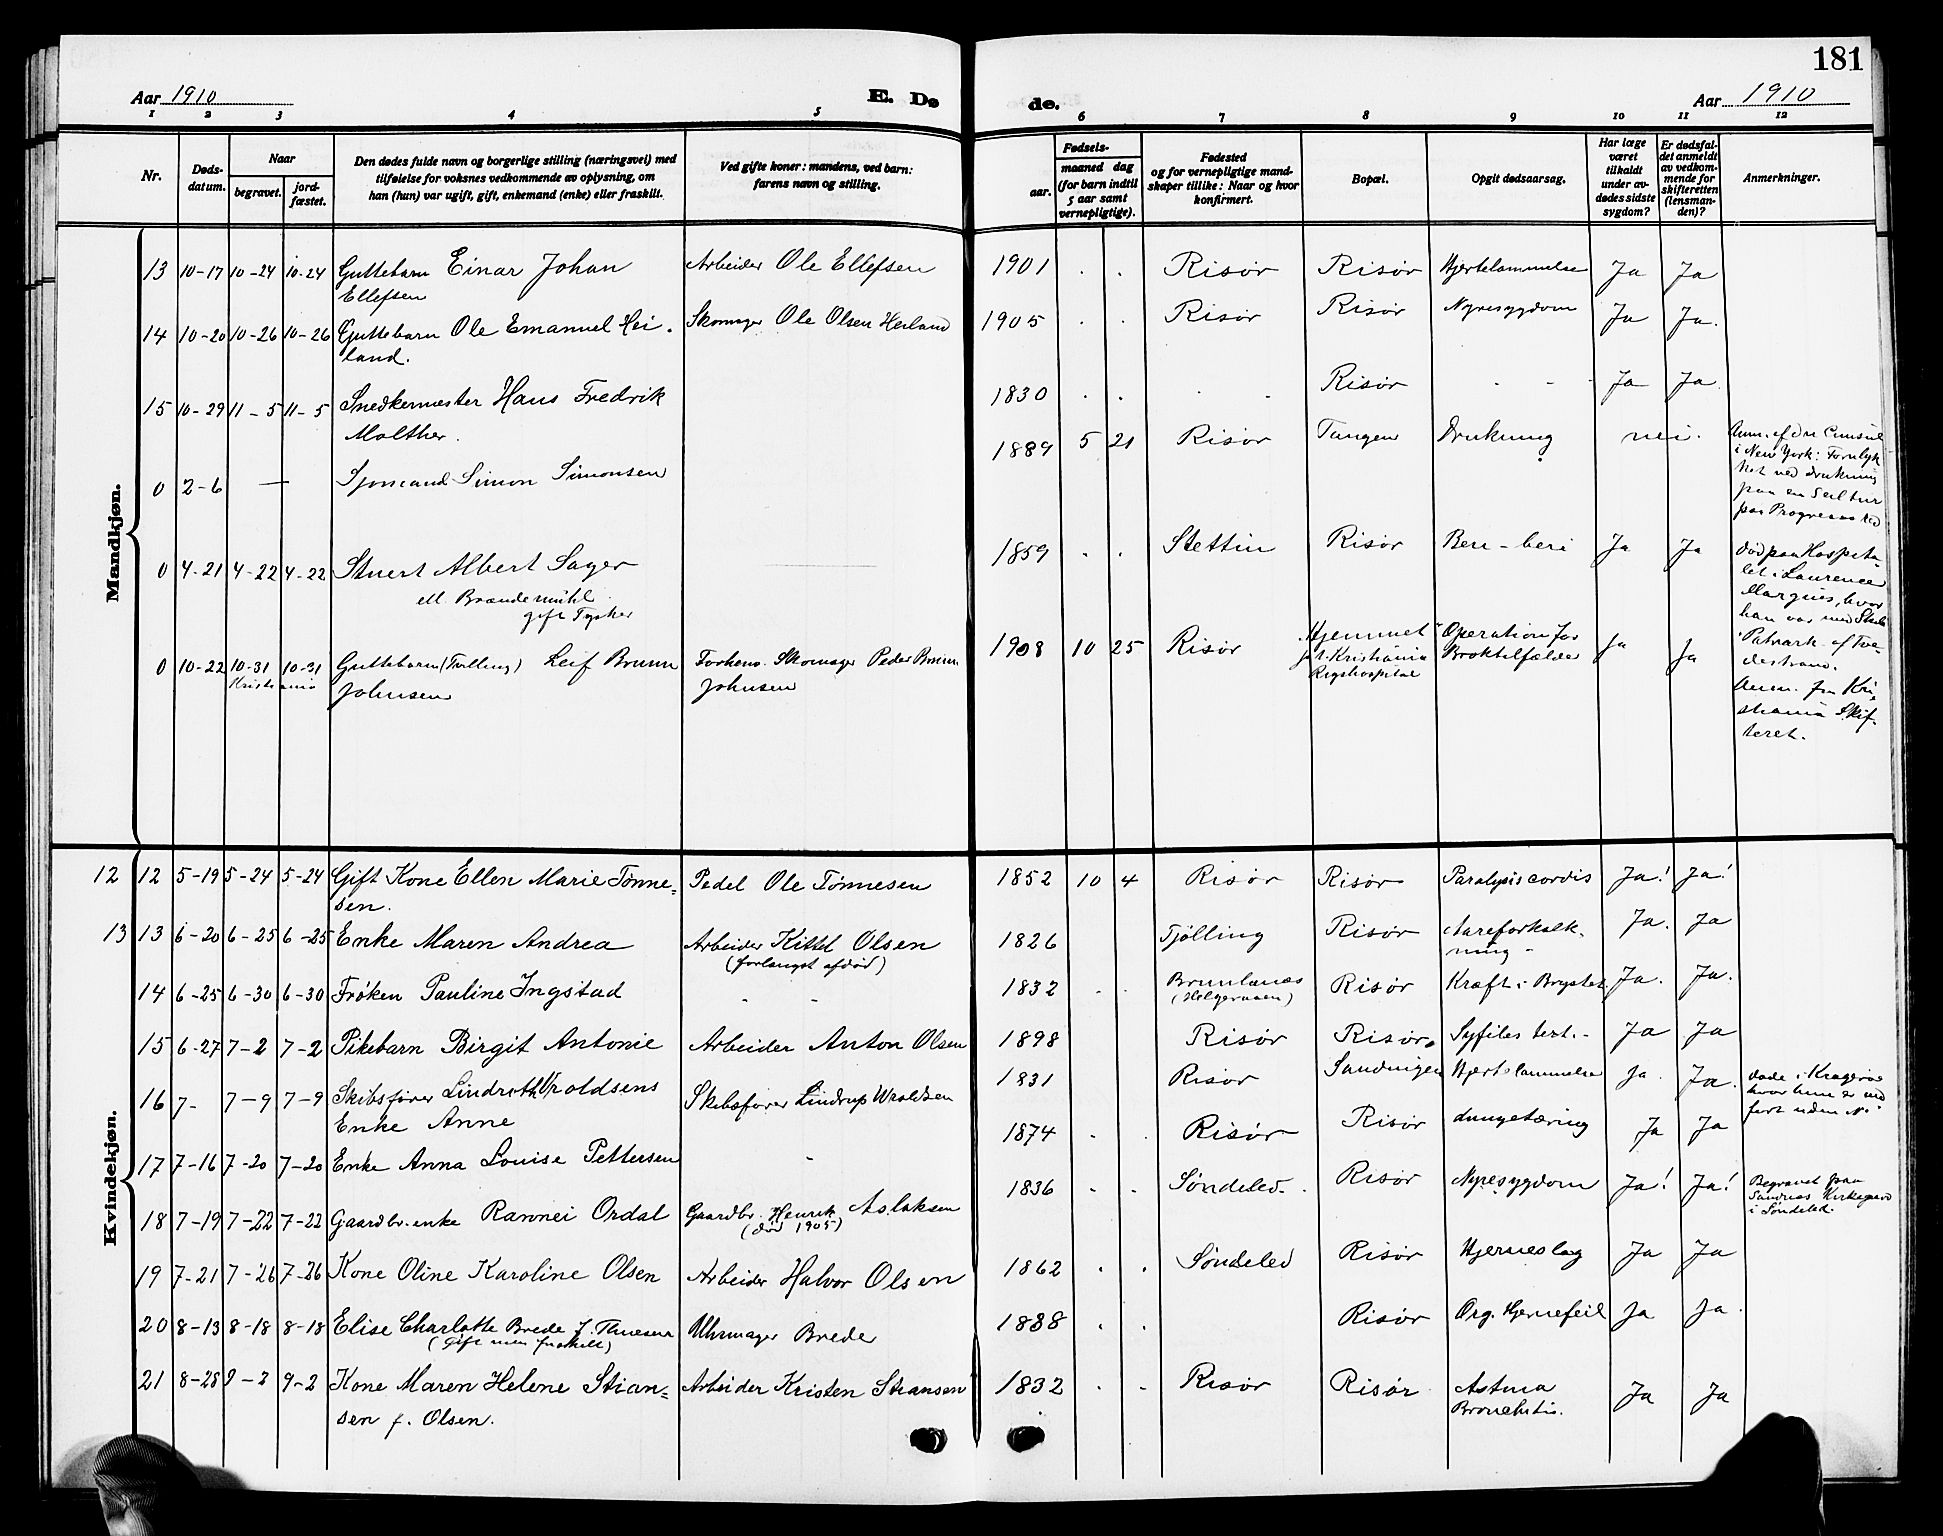 181
Aar 1910 E. Dø de. Aar 1910
1 2 3 4 5 6 7 8 9 10 11 12
Nr.
Døds-
datum.
Naar
begravet.
jord-
fæstet.
Den dødes fulde navn og borgerlige stilling (næringsvei) med
tilføielse for voksnes vedkommende av oplysning, om
han (hun) var ugift, gift, enkemand (enke) eller fraskilt.
Ved gifte koner: mandens, ved barn:
farens navn og stilling.
Fødsels-
aar.
maaned dag
(for barn indtil
5 aar samt
vernepligtige).
Fødested
og for vernepligtige mand-
skaper tillike: Naar og hvor
konfirmert.
Bopæl.
Opgit dødsaarsag.
Har læge
været
tilkaldt
under av-
dødes sidste
sygdom?
Er dødsfal-
det anmeldt
av vedkom-
mende for
skifteretten
(lensman-
den)?
Anmerkninger.
Mandkjøn.
13 10-17 10-24 10-24 Guttebarn Einar Johan Arbeider Ole Ellefsen 1901 . . Risør Risør Hjertelammelse Ja Ja
Ellefsen
14 10-20 10-26 10-26 Guttebarn Ole Emanuel Hei- Skomager Ole Olsen Heiland 1905 . . Risør Risør Nyresygdom Ja Ja.
land.
15 10-29 11-5 11-5 Snedkermester Hans Fredrik 1830 . . . . Risør - - - Ja Ja.
Molther.
0 2-6 — Sjømand Simon Simonsen 1889 5 21 Risør Tangen Drukning nei. Anm. af den Consul
i New York: Forulyk
ket ved drukning
paa en Seiltur
0 4-21 4-22 4-22 Stuert Albert Sager 1859 . . Stettin Risør Beri-beri Ja Ja død paa Hospita-
ell. Brandemühl
gift Tysker
let i Laurence
Marques, hvor
han var med Skib
0 10-22 10-31 10-31 Guttebarn (Tvilling) Leif Bruun Forhenv. Skomager Peder Bruun 1908 10 25 Risør Hjemmet Operation for Ja Ja
Kristiania
Johnsen Johnsen
f. t. Kristiania Broktilfælde
Rigshospital
"Patriark" af Tve-
destrand.
Anm. fra Kri-
stiania Skif-
teret.
Kvindekjøn.
12 12 5-19 5-24 5-24 Gift Kone Ellen Marie Tønne= Pedel Ole Tønnesen 1852 10 4 Risør Risør Paralysis cordis Ja! Ja!
sen.
13 13 6-20 6-25 6-25 Enke Maren Andrea Arbeider Kittel Olsen 1826 Tjølling Risør Aareforkalk- Ja. Ja
(forlængst afdød) ning
14 6-25 6-30 6-30 Frøken Pauline Ingstad - - 1832 . . Brunlanæs Risør Kræft i Brystet Ja. Ja.
(Helgeroaen)
15 6-27 7-2 7-2 Pikebarn Birgit Antonie Arbeider Anton Olsen 1898 Risør Risør. Syfiles tert.- Ja Ja
16 7- 7-9 7-9 Skibsfører Lindruth Wroldsens Skibsfører Lindrup Wroldsen 1831 Risør Sandnigen Hjertelammelse Ja. Ja. døde i Kragerø
Enke Anne
hvor hun er ind
ført uden No
17 7-16 7-20 7-20 Enke Anna Louise Pettersen - 1874 . . Risør Risør Lungetæring Ja Ja
18 7-19 7-22 7-22 Gaardbr. enke Rannei Ordal Gaardbr. Henrik Aslaksen 1836 . . Søndeled. Risør Nyresygdom Ja! Ja! Begravet paa
(død 1905)
Sandnes Kirkegaard
i Søndeled.
19 7-21 7-26 7-26 Kone Oline Karoline Olsen Arbeider Halvor Olsen 1862 . . Søndeled Risør Hjerneslag Ja Ja
20 8-13 8-18 8-18 Elise Charlotte Brede f. Thuesen Uhrmager Brede 1838 . . Risør Org. Hjertefeil Ja Ja.
(Gift men fraskilt)
21 8-28 9-2 9-2 Kone Maren Helene Stian= Arbeider Kristen Stiansen 1832 . - Risør Risør Astma Ja Ja
sen f. Olsen. Bronchitis.